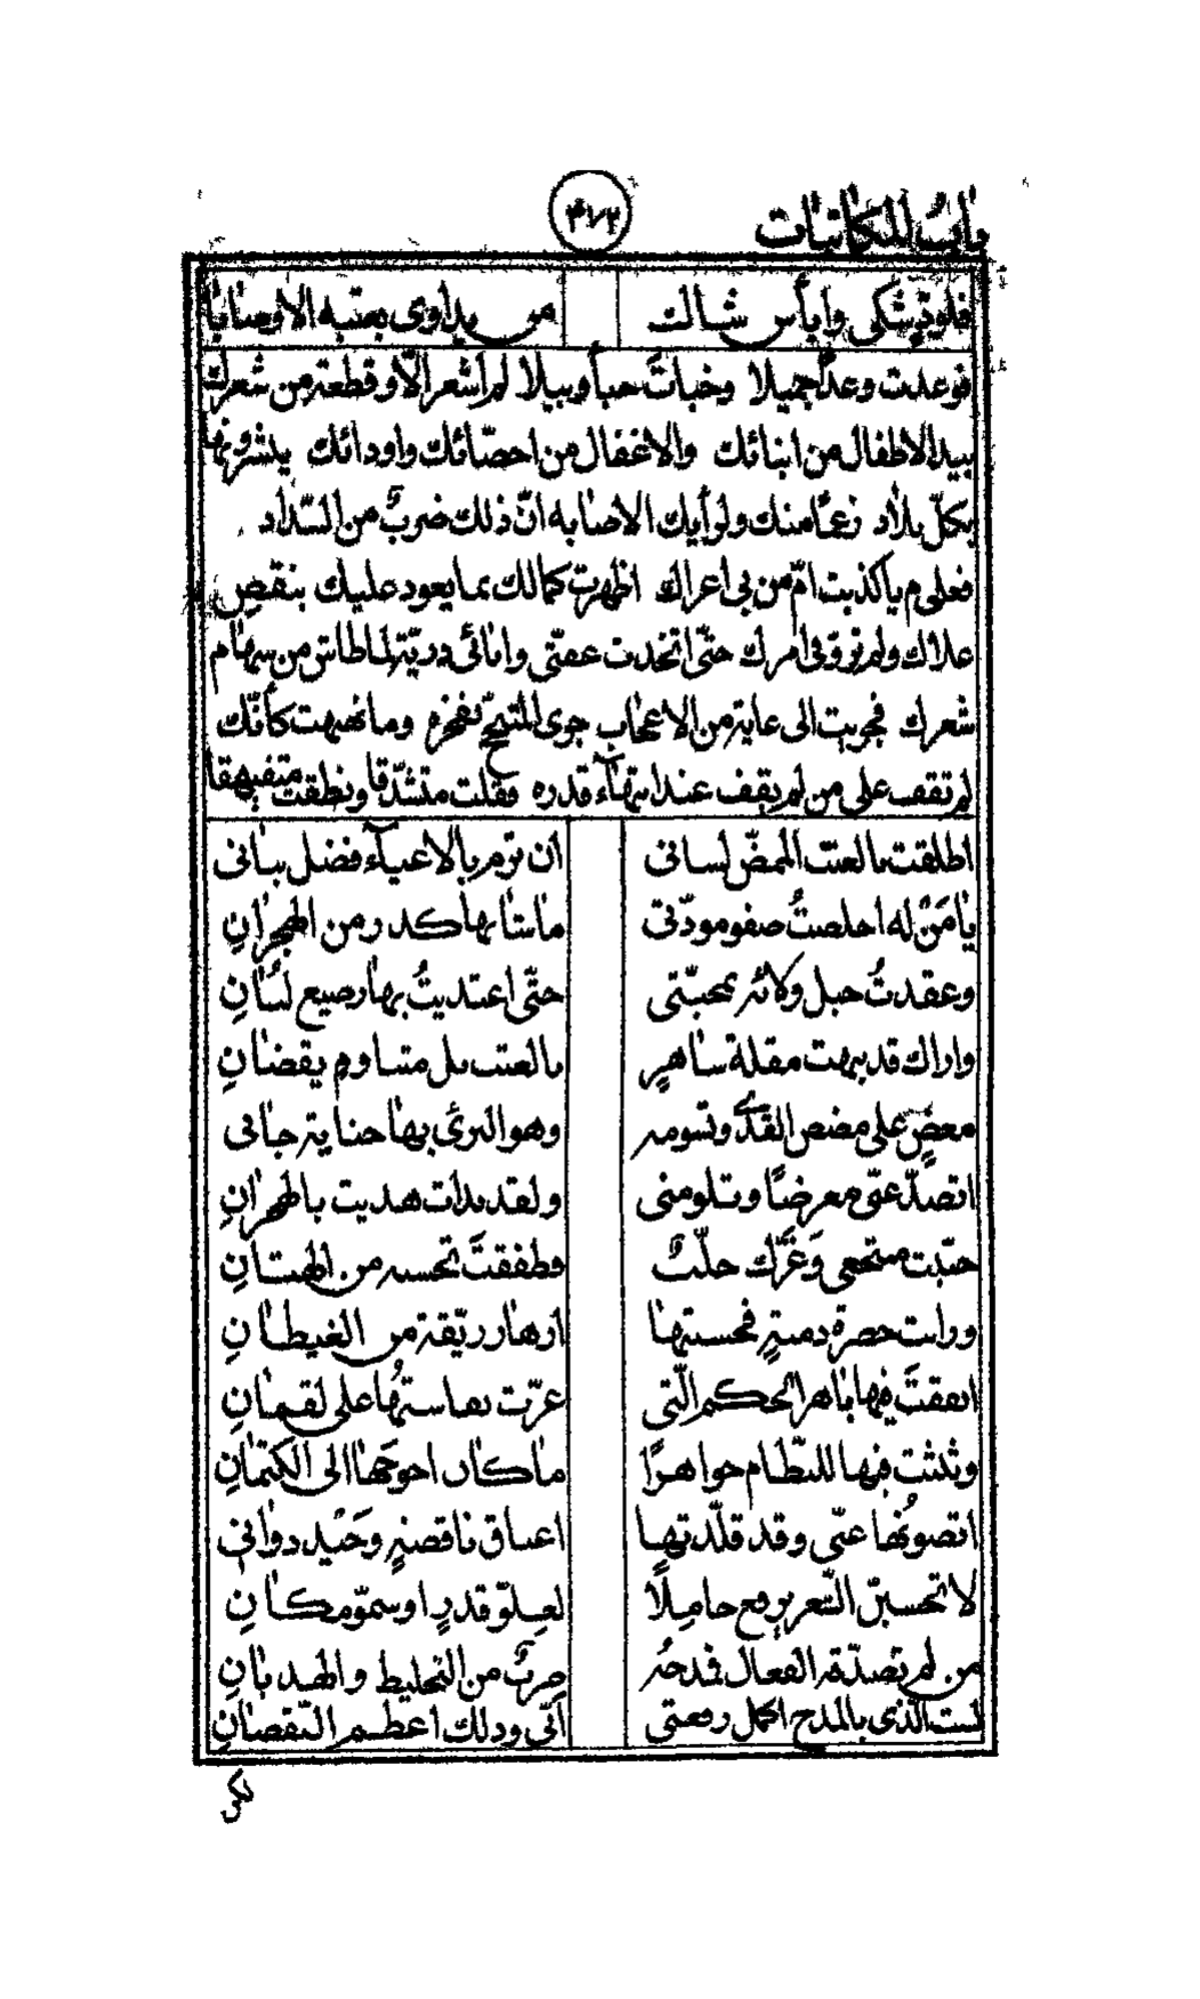 باب المكاتبات
٤٧٢
من يداوى بعتبه الاوصابا
فوعدت وعدًا جميلا وخبات حبأ وبيلا لم أشعر الّا وقطعة من شعرك
بيد الاطفال من ابنائك والاغفال من اخصّائك واودائك ينشرونها
بكلّ بلاد زعمًا منك ولرأيك الاصابه انّ ذلك ضربٌ من السّداد
اظهرت كمالك بما يعود عليك بنقص
علاك ولم تروّ فى امرك حتّى اتخذت عفّتى وابائى دريّة لما طاش من سهام
شعرك فجريت الى غاية من الاعجاب وما نهبهت كأنّك
لم تقف على من لم يقف عند انتهآء قدره وقلت متشدّقا ونطقت متفيهقا
اطلقت بالعتب الممضّ لسانى
ان ترم بالاعيآء فضل بيانى
يا مَنْ له اخلصتُ صفو مودّتى
ما شابها كدر من الهجرانِ
وعقدتُ حبل ولائه بمحبّتى
حتّى اغتديتُ بها رضيع لبانِ
واراك قد نبهت مقلة ساهرٍ
بالعتب بل متناومٍ يقضانِ
مغضٍ على مضض القذى وتسومه
وهو البرئ بها جناية جانى
اتصدّ عنّى معرضًا وتلومنى
ولقد بدات هديت بالهجرانِ
وطفقتَ تحسبه من الهتانِ
ورايت خضرة دمنةٍ فحسبتها
ازهار ريّقة من الغيطانِ
انفقتَ فيها باهر الحكم الّتى
عزّت نفاستُها على لقمانِ
ونثثت فيها للنظام جواهرًا
ما كان احوجَها الى الكتمانِ
اتصونُها عنّى وقد قلّدتها
اعناق ناقصةٍ وجَيد دوانى
لا تحسبنّ الشّعر يرفع خاملًا
لعلوّ قدرٍ او سموّ مكانِ
من لم تصدّقه الفعال فمدحُه
ضربٌ من التخليط والهذيانِ
لست الّذى بالمدح اكمل رفعتى
انّى وذلك اعظم النّقصانِ